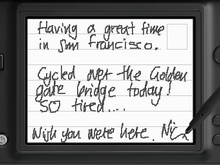 Having a great time
in San Francisco.
Cycled over the Golden
gate bridge today!
SO tired....
Wish you were here. Nick